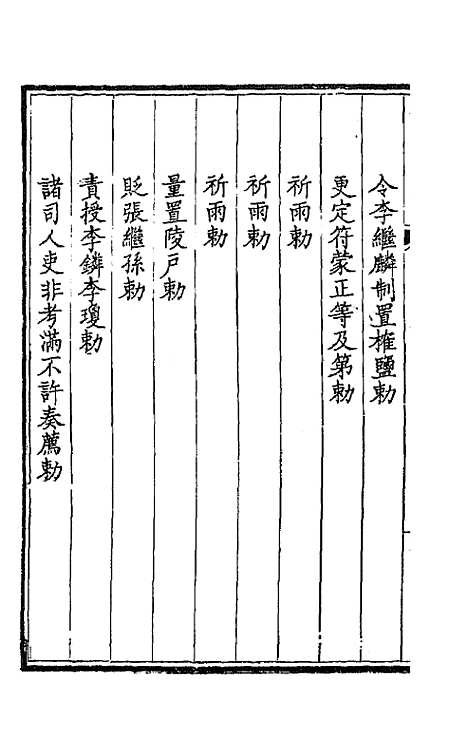 令李繼麟制置榷鹽勅
更定符蒙正等及第勅
祈雨勅
祈雨勅
祈雨勅
量置陵戸勅
貶張繼孫勅
責授李鏻李瓊勅
諸司人吏非考滿不許奏薦勅